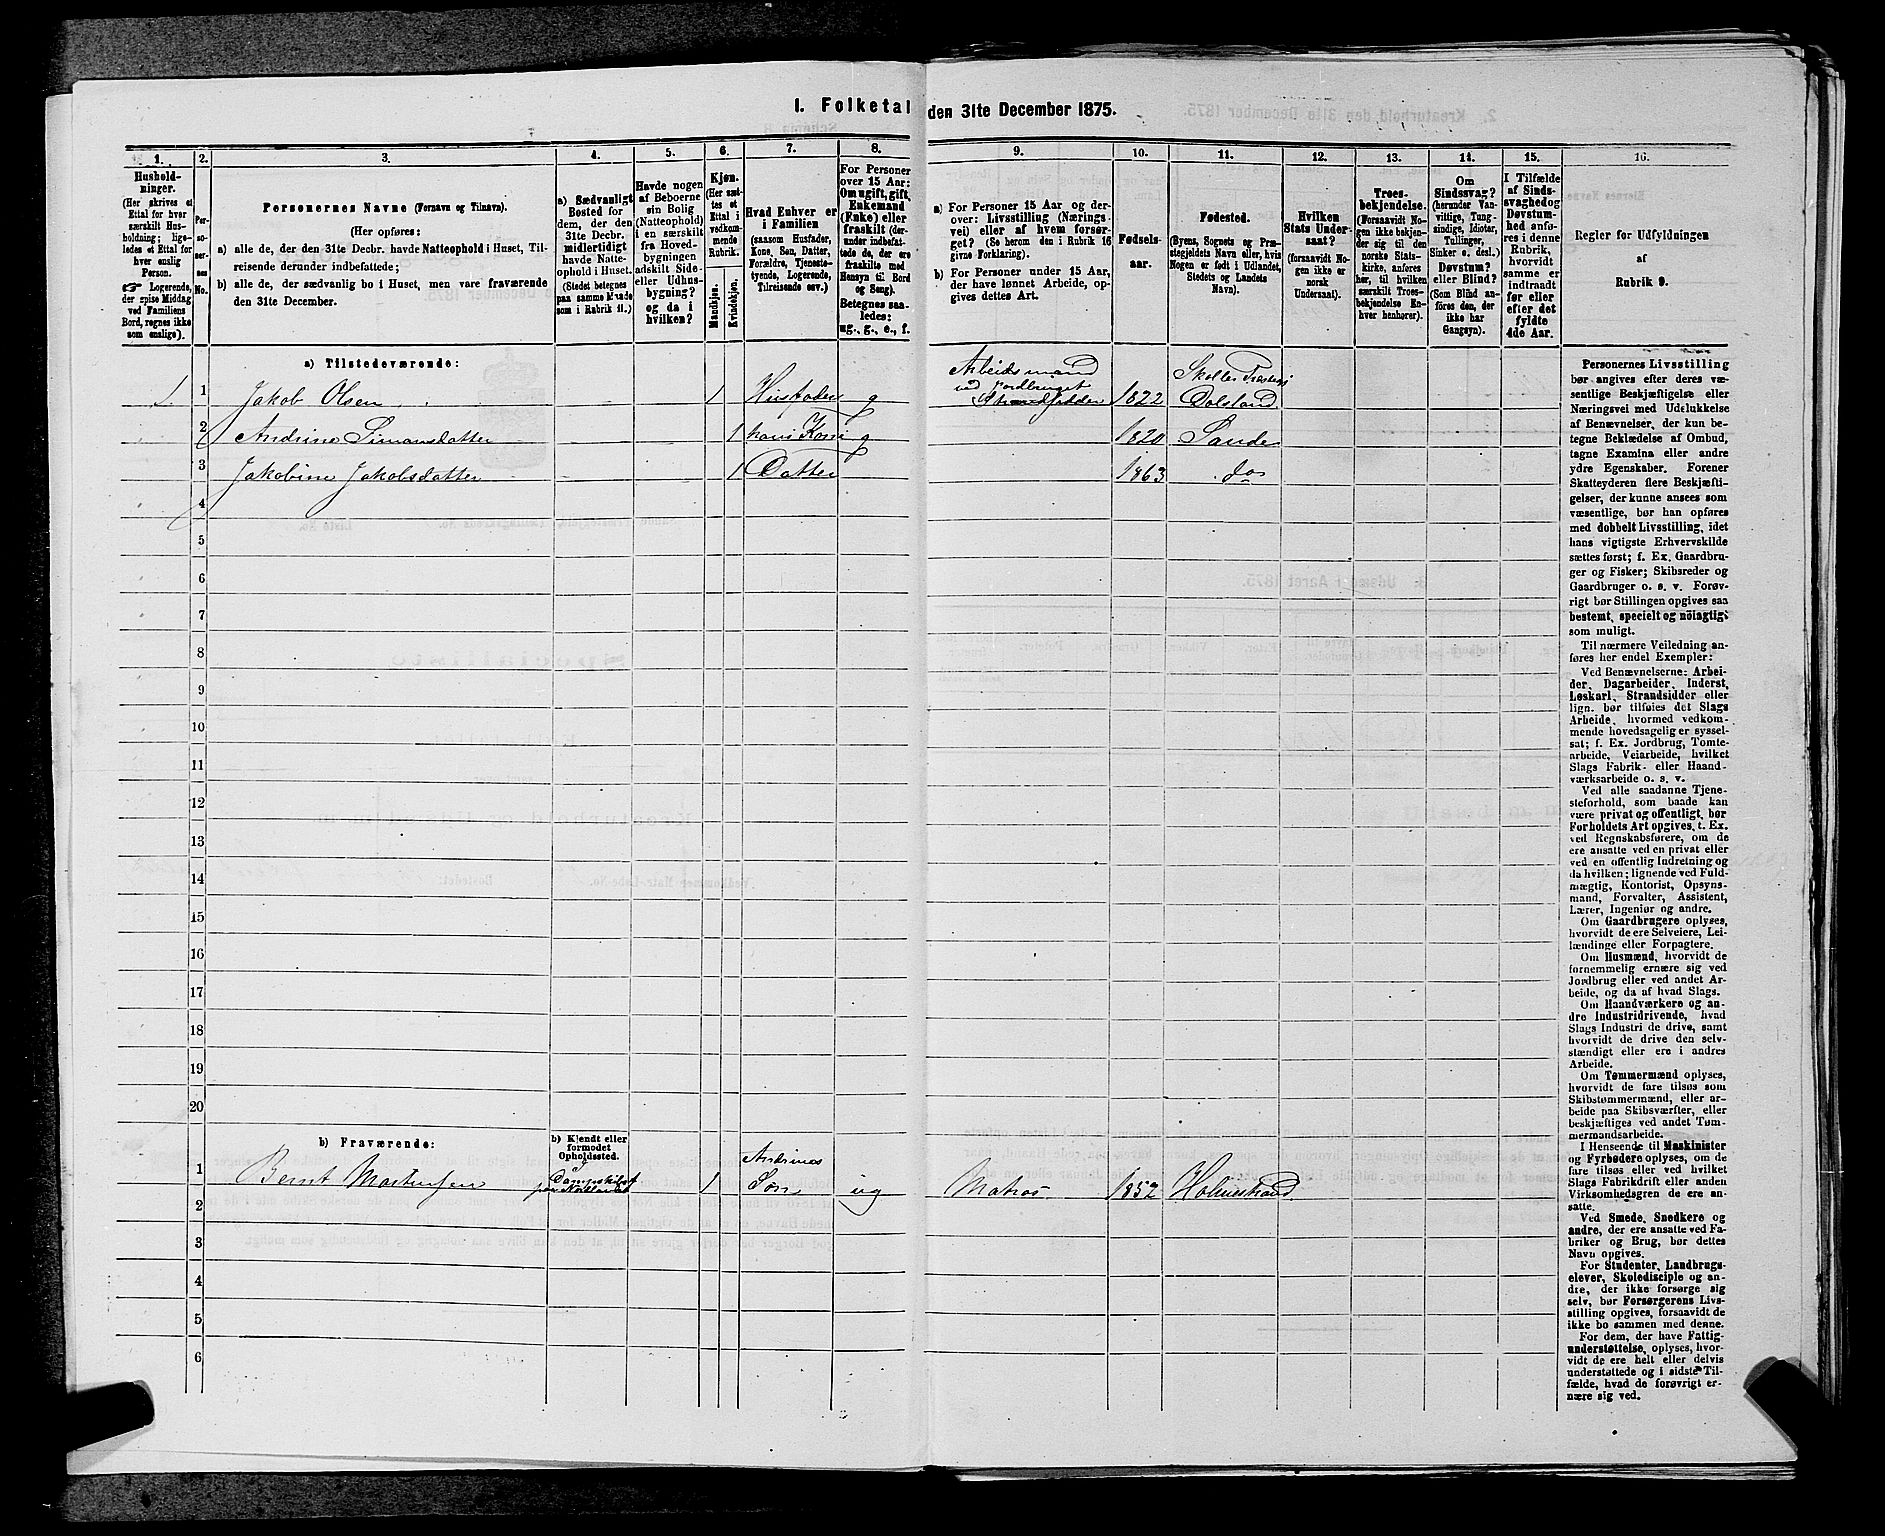 1. Folketal den 31te December 1875.
1. 2. 3. 4. 5. 6. 7. 8. 9. 10. 11. 12. 13. 14. 15. 16.
Hushold-
ninger.
(Her skrives et
Ettal for hver
særskilt Hus-
holdning; lige-
ledes et Ettal for
hver enslig
Person.
☞ Logerende,
der spise Middag
ved Familiens
Bord, regnes ikke
som enslige).
Per-
so-
ner-
nes
No.
Personernes Navne (Fornavn og Tilnavn).
(Her opføres:
a) alle de, der den 31te Decbr. havde Natteophold i Huset, Til-
reisende derunder indbefattede;
b) alle de, der sædvanlig bo i Huset, men vare fraværende
den 31te December.
a) Sædvanligt
Bosted for
dem, der den
31te Decbr.
midlertidigt
havde Natte-
ophold i Huset.
(Stedet betegnes
paa samme Maade
som i Rubrik 11.)
Havde nogen
af Beboerne
sin Bolig
(Natteophold)
i en særskilt
fra Hoved-
bygningen
adskilt Side-
eller Udhus-
bygning?
og da i
hvilken?
Kjøn.
(Her sæt-
tes et
Ettal i
vedkom-
mende
Rubrik.
Mandkjøn.
Kvindekjøn.
Hvad Enhver er
i Familien
(saasom Husfader,
Kone, Søn, Datter,
Forældre, Tjeneste-
tyende, Logerende,
Tilreisende osv.)
For Personer
over 15 Aar:
Om ugift, gift,
Enkemand
(Enke) eller
fraskilt (der-
under indbefat-
tede de, der ere
fraskilte med
Hensyn til Bord
og Seng).
Betegnes saa-
ledes:
ug., g., e., f.
a) For Personer 15 Aar og der-
over: Livsstilling (Nærings-
vei) eller af hvem forsør-
get? (Se herom den i Rubrik 16
givne Forklaring).
b) For Personer under 15 Aar,
der have lønnet Arbeide, op-
gives dettes Art.
Fødsels-
aar.
Fødested.
(Byens, Sognets og Præ-
stegjeldets Navn eller, hvis
Nogen er født i Udlandet,
Stedets og Landets
Navn).
Hvilken
Stats Under-
saat?
(forsaavidt No-
gen ikke er
norsk
Undersaat).
Troes-
bekjendelse.
(Forsaavidt No-
gen ikke bekjen-
der sig til den
norske Stats-
kirke, anføres
her, til hvilken
særskilt Troes-
bekjendelse En-
hver henhører).
Om
Sindssvag?
(herunder Van-
vittige, Tung-
sindige, Idioter,
Tullinger,
Sinker o. desl.)
Døvstum?
eller Blind?
(Som Blind an-
føres den, der
ikke har
Gangsyn).
I Tilfælde
af Sinds-
svaghed og
Døvstum-
hed anfø-
res i denne
Rubrik,
hvorvidt
samme er
indtraadt
før eller
efter det
fyldte
4de Aar.
Regler for Udfyldningen
af
Rubrik 9.
a) Tilstedeværende:
1 1 Jakob Olsen 1 Husfader g Arbeidsmand
ved Jordbruget
Strandsidder 1822
2 Andrine Simonsdatter 1 hans Kone g 1820 Sande
3 Jakobine Jakobsdatter 1 Datter 1863 do
4
5
6
7
8
9
10
11
12
13
14
15
16
17
18
19
20
b) Fraværende:
b) Kjendt eller
formodet
Opholdssted.
1 Bernt 1 Andrines
Søn ug Matros 1852 Holmestrand
2
3
4
5
6
Personernes Livsstilling
bør angives efter deres væ-
sentlige Beskjæftigelse eller
Næringsvei med Udelukkelse
af Benævnelser, der kun be-
tegne Beklædelse af Ombud,
tagne Examina eller andre
ydre Egenskaber. Forener
Skatteyderen flere Beskjæfti-
gelser, der kunne ansees som
væsentlige, bør han opføres
med dobbelt Livsstilling, idet
hans vigtigste Erhvervskilde
sættes først; f. Ex. Gaardbru-
ger og Fisker; Skibsreder og
Gaardbruger o. s. v. Forøv-
rigt bør Stillingen opgives saa
bestemt, specielt og nöiagtigt
som muligt.
Til nærmere Veiledning an-
føres her endel Exempler:
Ved Benævnelserne: Arbei-
der, Dagarbeider, Inderst,
Løskarl, Strandsidder eller
lign. bør tilføies det Slags
Arbeide, hvormed vedkom-
mende hovedsagelig er syssel-
sat; f. Ex. Jordbrug, Tomte-
arbeide, Veiarbeide, hvilket
Slags Fabrik- eller Haand-
værksarbeide o. s. v.
Ved alle saadanne Tjene-
steforhold, som baade kan
være privat og offentligt, bør
Forholdets Art opgives, t. Ex.
ved Regnskabsførere, om de
ere ansatte ved en privat eller
ved en offentlig Indretning og
da hvilken; lignende ved Fuld-
mægtig, Kontorist, Opsyns-
mand, Forvalter, Assistent,
Lærer, Ingeniør og andre.
Om Gaardbrugere oplyses,
hvorvidt de ere Selveiere, Lei-
lændinge eller Forpagtere.
Om Husmænd, hvorvidt de
fornemmelig ernære sig ved
Jordbrug eller ved andet Ar-
beide, og da af hvad Slags.
Om Haandværkere og an-
dre Industridrivende, hvad
Slags Industri de drive, samt
hvorvidt de drive den selv-
stændigt eller ere i andres
Arbeide.
Om Tømmermænd oplyses,
hvorvidt de fare tilsøs som
Skibstømmermænd, eller ar-
beide paa Skibsværfter, eller
beskjæftiges ved andet Tøm-
mermandsarbeide.
I Henseende til Maskinister
og Fyrbødere oplyses, om de
fare tilsøs eller ved hvilket
Slags Fabrikdrift eller anden
Virksomhedsgren de ere an-
satte.
Ved Smede, Snedkere og
andre, der ere ansatte ved Fa-
briker og Brug, bør dettes
Navn opgives.
For Studenter, Landbrugs-
elever, Skoledisciple og an-
dre, der ikke forsørge sig
selv, bør Forsørgerens Livs-
stilling opgives, forsaavidt de
ikke bo sammen med denne.
For dem, der have Fattig-
understøttelse, oplyses, hvor-
vidt de ere helt eller delvis
understøttede og i sidste Til-
fælde, hvad de forøvrigt er-
nære sig ved.